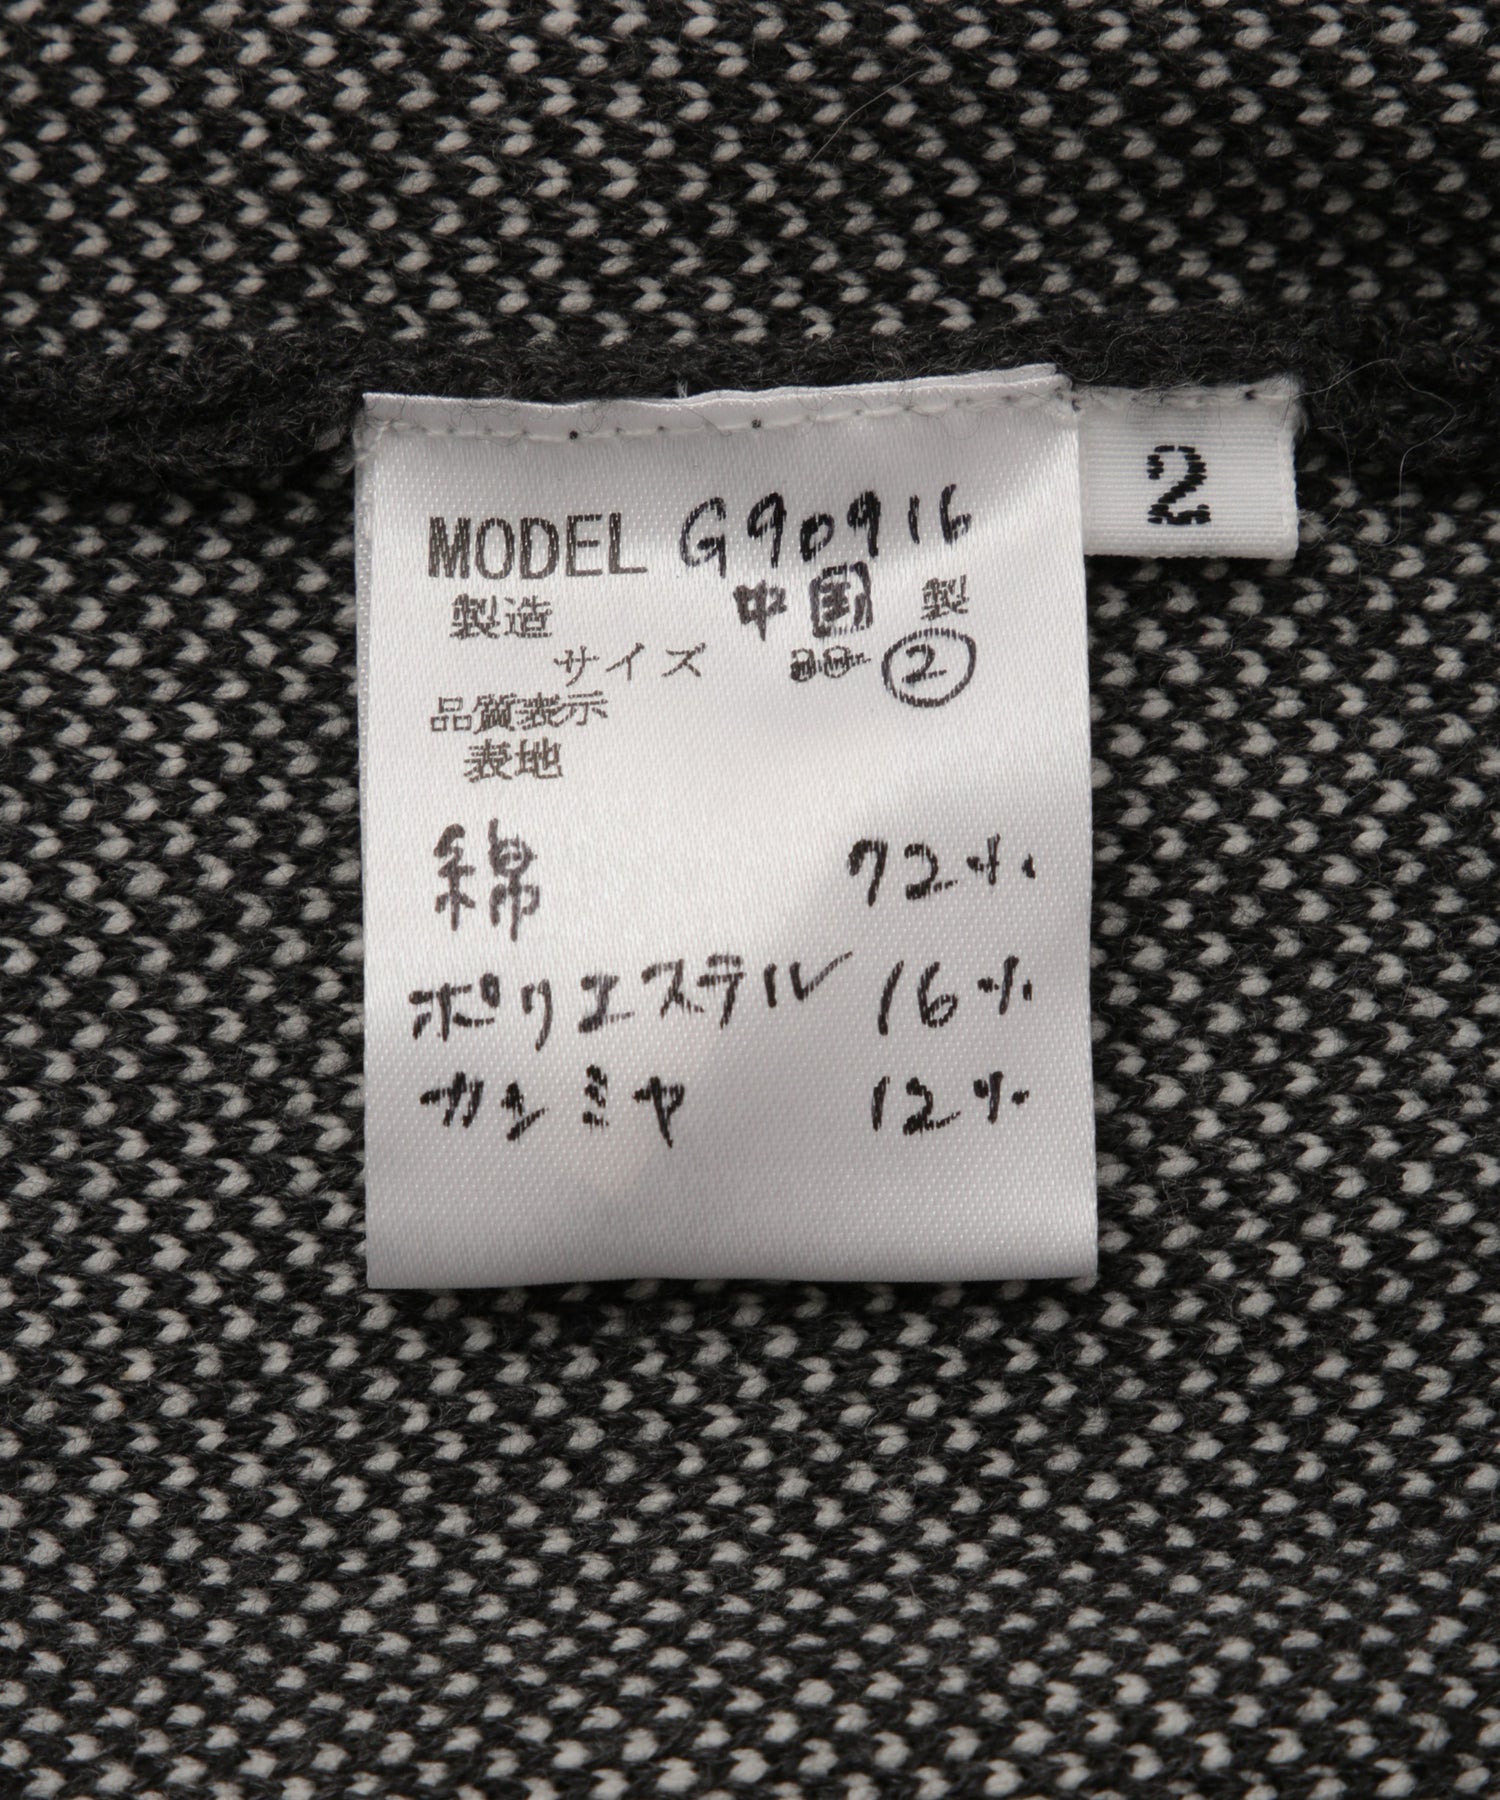 MODEL G90916
製造 中国 製
サイズ ②
品質表示
表地
綿 72%
ポリエステル 16%
カシミヤ 12%
2